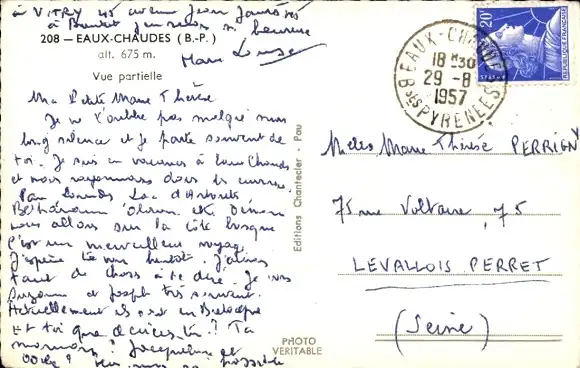 à VITRY 45 avenue Jean Jaurès
à Bientôt
heureuse
208 — EAUX-CHAUDES (B.-P.)
alt. 675 m.
Marie Louise
Vue partielle
Ma Petite Marie Thérèse
Je ne t'oublie pas malgré mon
long silence et je parle souvent de
toi. Je suis en vacances à Eaux Chaudes
et nous rayonnons dans les environs
Pau Lourdes Lac d'Artouste
Bétharram Oloron etc. Demain
nous allons sur la côte basque
C'est un merveilleux voyage
J'espère te voir bientôt. J'aurais
tant de choses à te dire. Je vois
Suzanne et Joseph très souvent.
Actuellement ils sont en Bretagne
Et toi que deviens tu? Ta
maman? Jacqueline et
possible
Editions Chantecler - Pau
PHOTO
VERITABLE
EAUX-CHAUDES
18H30
29-8
1957
BSES PYRENEES
20F
REPUBLIQUE FRANÇAISE
POSTES
Melles Marie Thérèse PERRIGNY
75 rue Voltaire, 75
LEVALLOIS PERRET
(Seine)